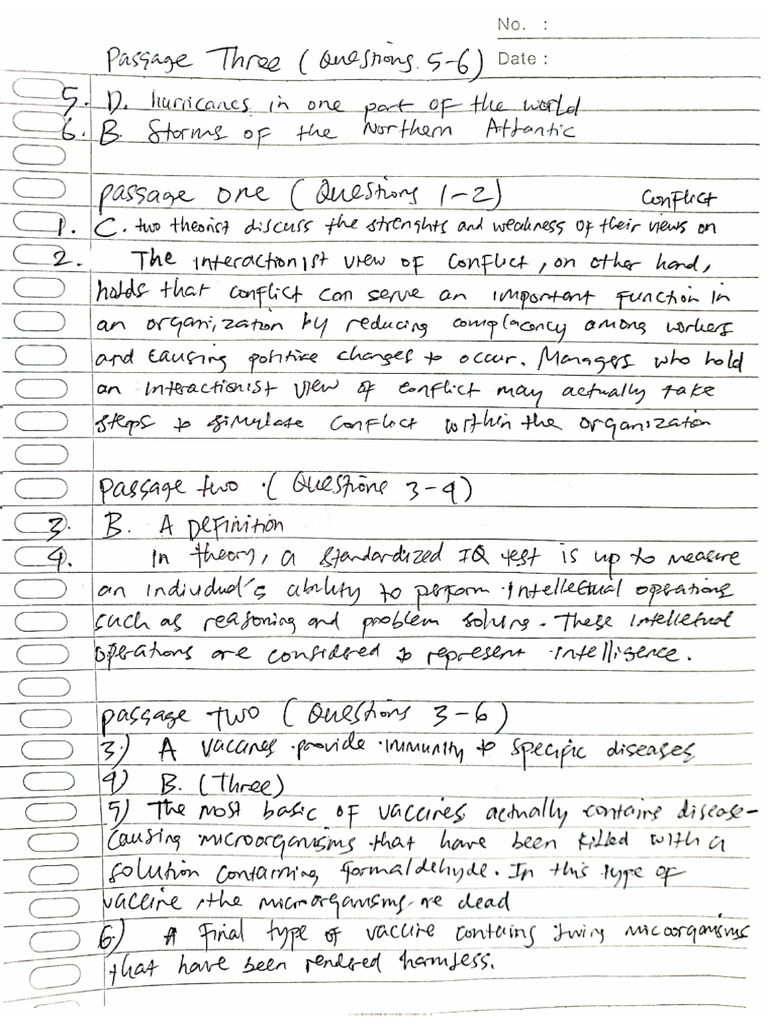 No. :
Passage Three (Questions 5-6) Date :
5. D. hurricanes in one part of the world
6. B. Storms of the Northern Atlantic
passage one (Questions 1-2) Conflict
1. C. two theorist discuss the strenghts and weakness of their views on
2. The interactionist view of conflict, on other hand,
holds that conflict can serve an important function in
an organization by reducing complacency among workers
and causing politive changes to occur. Managers who hold
an interactionist view of conflict may actually take
steps to simulate conflict within the organization
passage two (Questions 3-4)
3. B. A Definition
4. In theory, a standardized IQ test is up to measure
an individual's ability to perform intellectual operations
such as reasoning and problem solving. These intellectual
operations are considered to represent intelligence.
passage two (Questions 3-6)
3) A vaccines provide immunity to specific diseases
4) B. (Three)
5) The most basic of vaccines actually contains disease-
causing microorganisms that have been killed with a
solution containing formaldehyde. In this type of
vaccine, the microorganisms are dead
6) A final type of vaccine contains living micoorganisms
that have been rendered harmless.